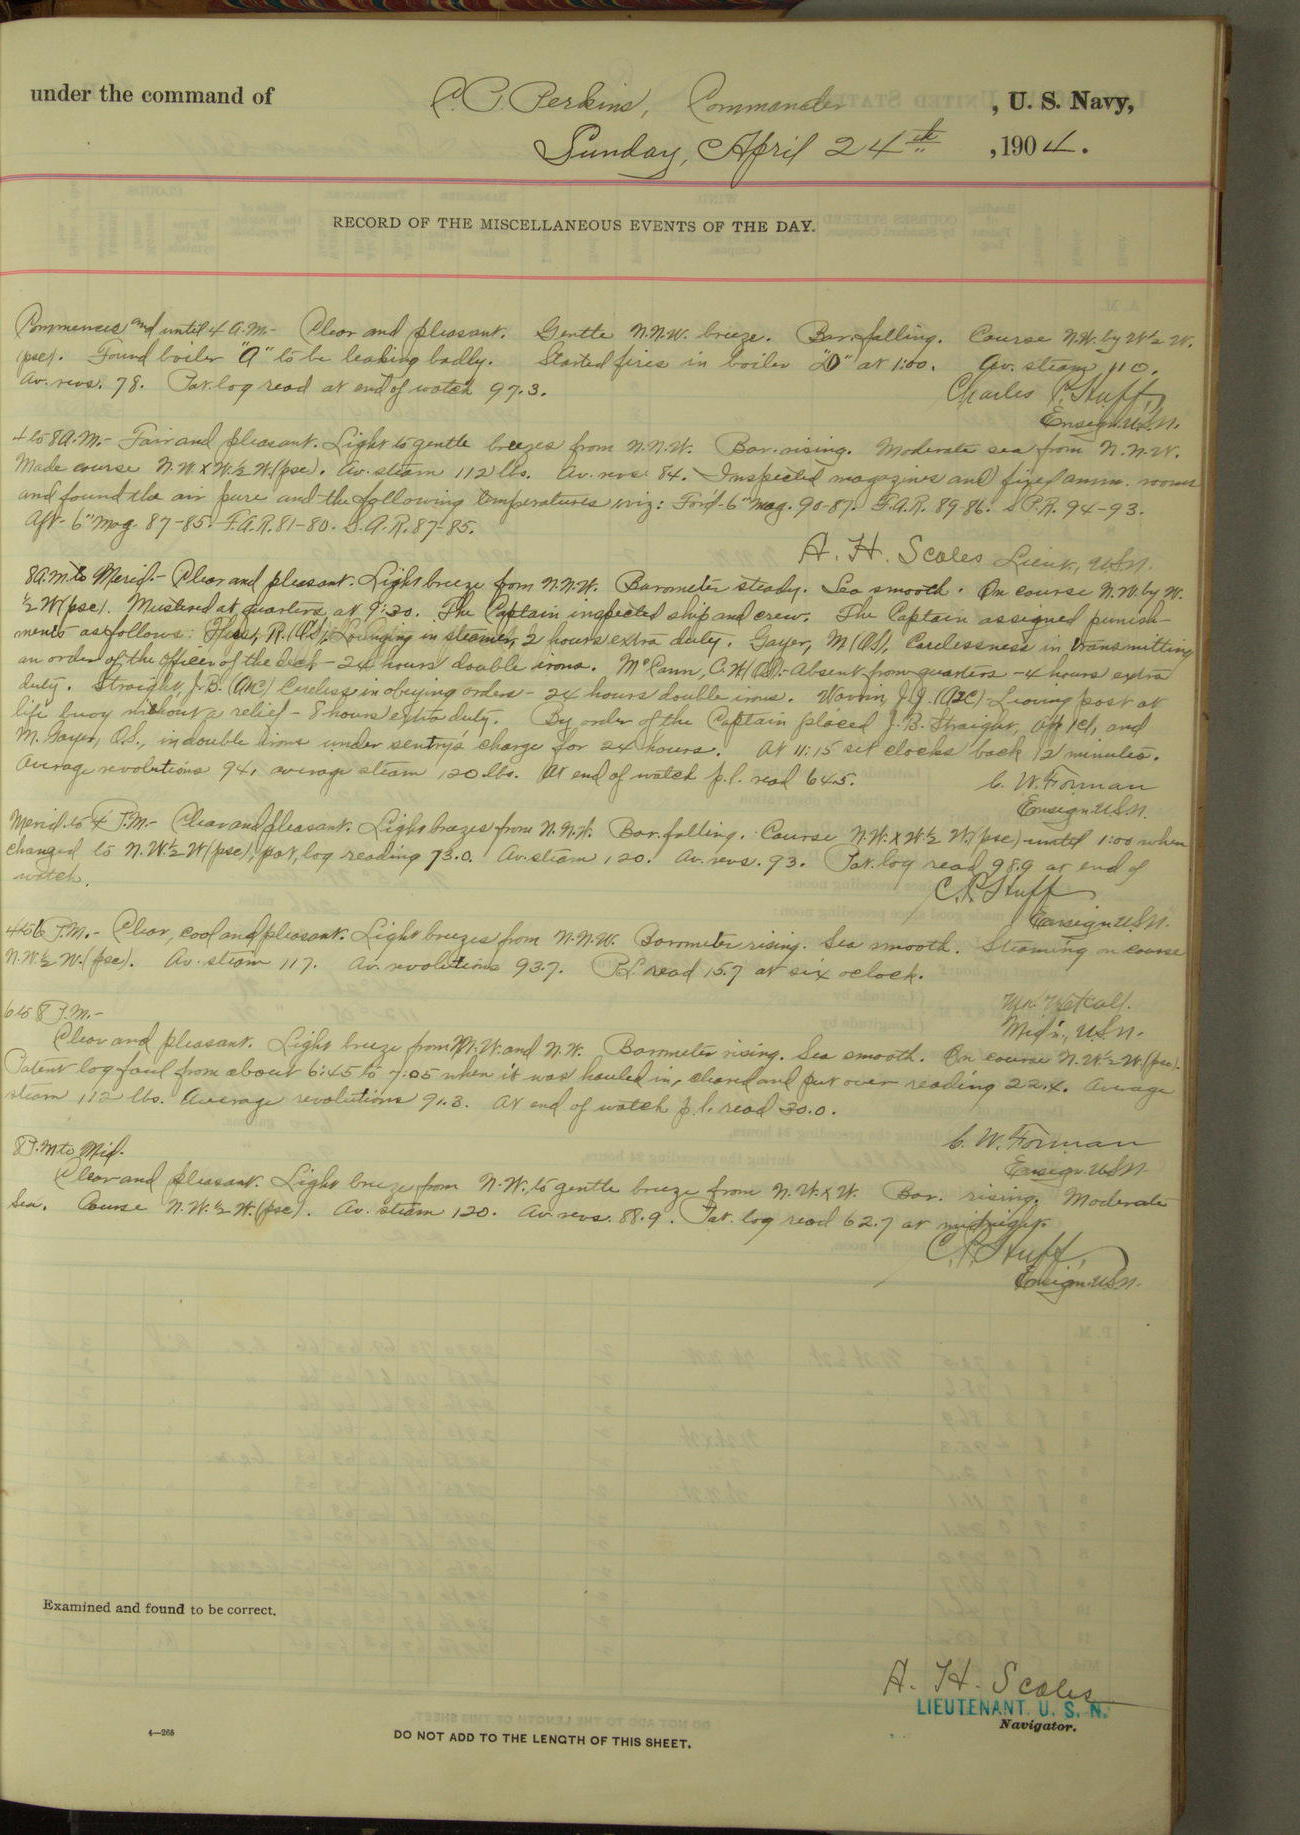 under the command of C. P. Perkins, Commander, U. S. Navy,
Sunday, April 24th, 1904.
RECORD OF THE MISCELLANEOUS EVENTS OF THE DAY.
Commences and until 4 A.M.- Clear and pleasant. Gentle N.N.W. breeze. Bar. falling. Course N.W. by W½ W.
(psc). Found boiler "A" to be leaking badly. Started fires in boiler "D" at 1:00. Av. steam 110.
Av. revs. 78. Pat. log read at end of watch 97.3.
Charles P. Huff,
Ensign U.S.N.
4 to 8 A.M.- Fair and pleasant. Light to gentle breezes from N.N.W. Bar. rising. Moderate sea from N.N.W.
Made course N.W. x W. ½ W. (psc). Av. steam 112 lbs. Av. revs. 84. Inspected magazines and fixed amm. rooms
and found the air pure and the following temperatures viz: For'd. 6" mag. 90-87. F.A.R. 89-86. S.P.R. 94-93.
Aft- 6" Mag. 87-85. F.A.R. 81-80. S.A.R. 87-85.
A. H. Scales Lieut., U.S.N.
8 A.M. to Merid.- Clear and pleasant. Light breeze from N.N.W. Barometer steady. Sea smooth. On course N.W. by W.
½ W (psc). Mustered at quarters at 9:30. The Captain inspected ship and crew. The Captain assigned punish-
ments as follows: R. Lounging in steamer, 2 hours extra duty. Gayer, M (OS), Carelessness in transmitting
an order of the officer of the deck - 24 hours double irons. McCann, C. H. (OS).- Absent from quarters - 4 hours extra
duty. Straight, J. B. (A1C) Careless in obeying orders - 24 hours double irons. J. J. (A2C) - Leaving post at
life buoy without a relief - 8 hours extra duty. By order of the Captain placed J. B. Straight, App 1Cl, and
M. Gayer, O.S., in double irons under sentry's charge for 24 hours. At 11:15 set clocks back 12 minutes.
Average revolutions 94, average steam 120 lbs. At end of watch p.l. read 64.5.
C. W. Forman
Ensign U.S.N.
Merid. to 4 P.M.- Clear and pleasant. Light breezes from N.N.W. Bar. falling. Course N.W. x W ½ W. (psc) until 1:00 when
changed to N.W. ½ W (psc), pat. log reading 73.0. Av. steam 120. Av. revs. 93. Pat. log read 98.9 at end of
watch.
C. P. Huff
Ensign U.S.N.
4 to 6 P.M.- Clear, cool and pleasant. Light breezes from N.N.W. Barometer rising. Sea smooth. Steaming on course
N.W. ½ W. (psc). Av. steam 117. Av. revolutions 93.7. P.L. read 15.7 at six oclock.
Metcalf.
Mid'n., U.S.N.
6 to 8 P.M.-
Clear and pleasant. Light breeze from N.N.W. and N.W. Barometer rising. Sea smooth. On course N.W. ½ W (psc).
Patent log foul from about 6:45 to 7:05 when it was hauled in, cleared and put over reading 22.4. Average
steam 112 lbs. Average revolutions 91.3. At end of watch p.l. read 30.0.
C. W. Forman
Ensign U.S.N.
8 P.M. to Mid.
Clear and pleasant. Light breeze from N.W. to gentle breeze from N.W. x W. Bar. rising. Moderate
Sea. Course N.W. ½ W. (psc). Av. steam 120. Av. revs. 88.9. Pat. log read 62.7 at midnight.
C. P. Huff,
Ensign U.S.N.
Examined and found to be correct.
A. H. Scales
LIEUTENANT. U. S. N.
Navigator.
4—268
DO NOT ADD TO THE LENGTH OF THIS SHEET.